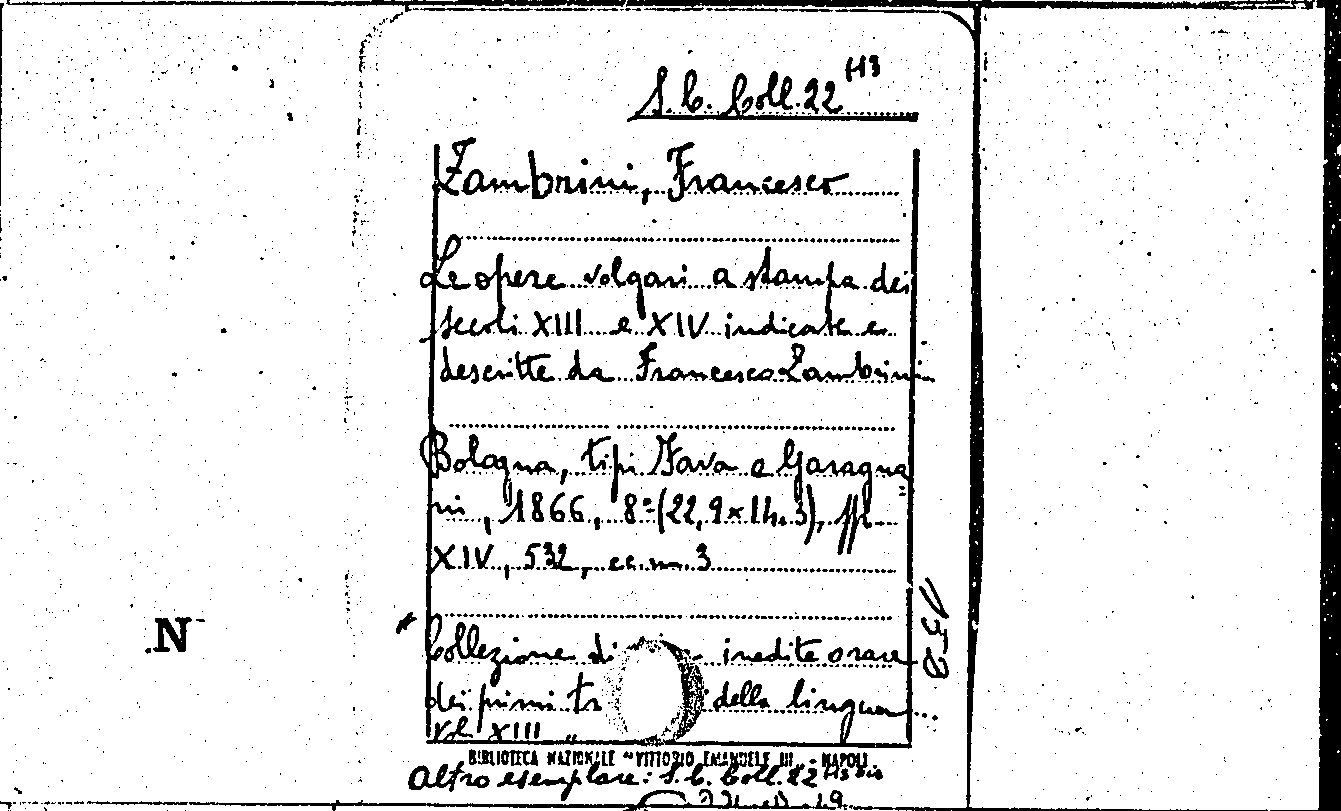 S. C. Coll. 22 H3
Zambrini, Francesco
Le opere volgari a stampa dei
secoli XIII e XIV indicate e
descritte da Francesco Zambrini
Bologna, tipi Fava e Garagna
ni, 1866, 8º (22,9x14.3), pp.
XIV, 532, cc. n. 3
Collezione di inedite o rare
dei primi tr della lingua
vol. XIII
1952
.N
BIBLIOTECA NAZIONALE "VITTORIO EMANUELE III" - NAPOLI
Altro esemplare: S. C. Coll. 22 H3 bis